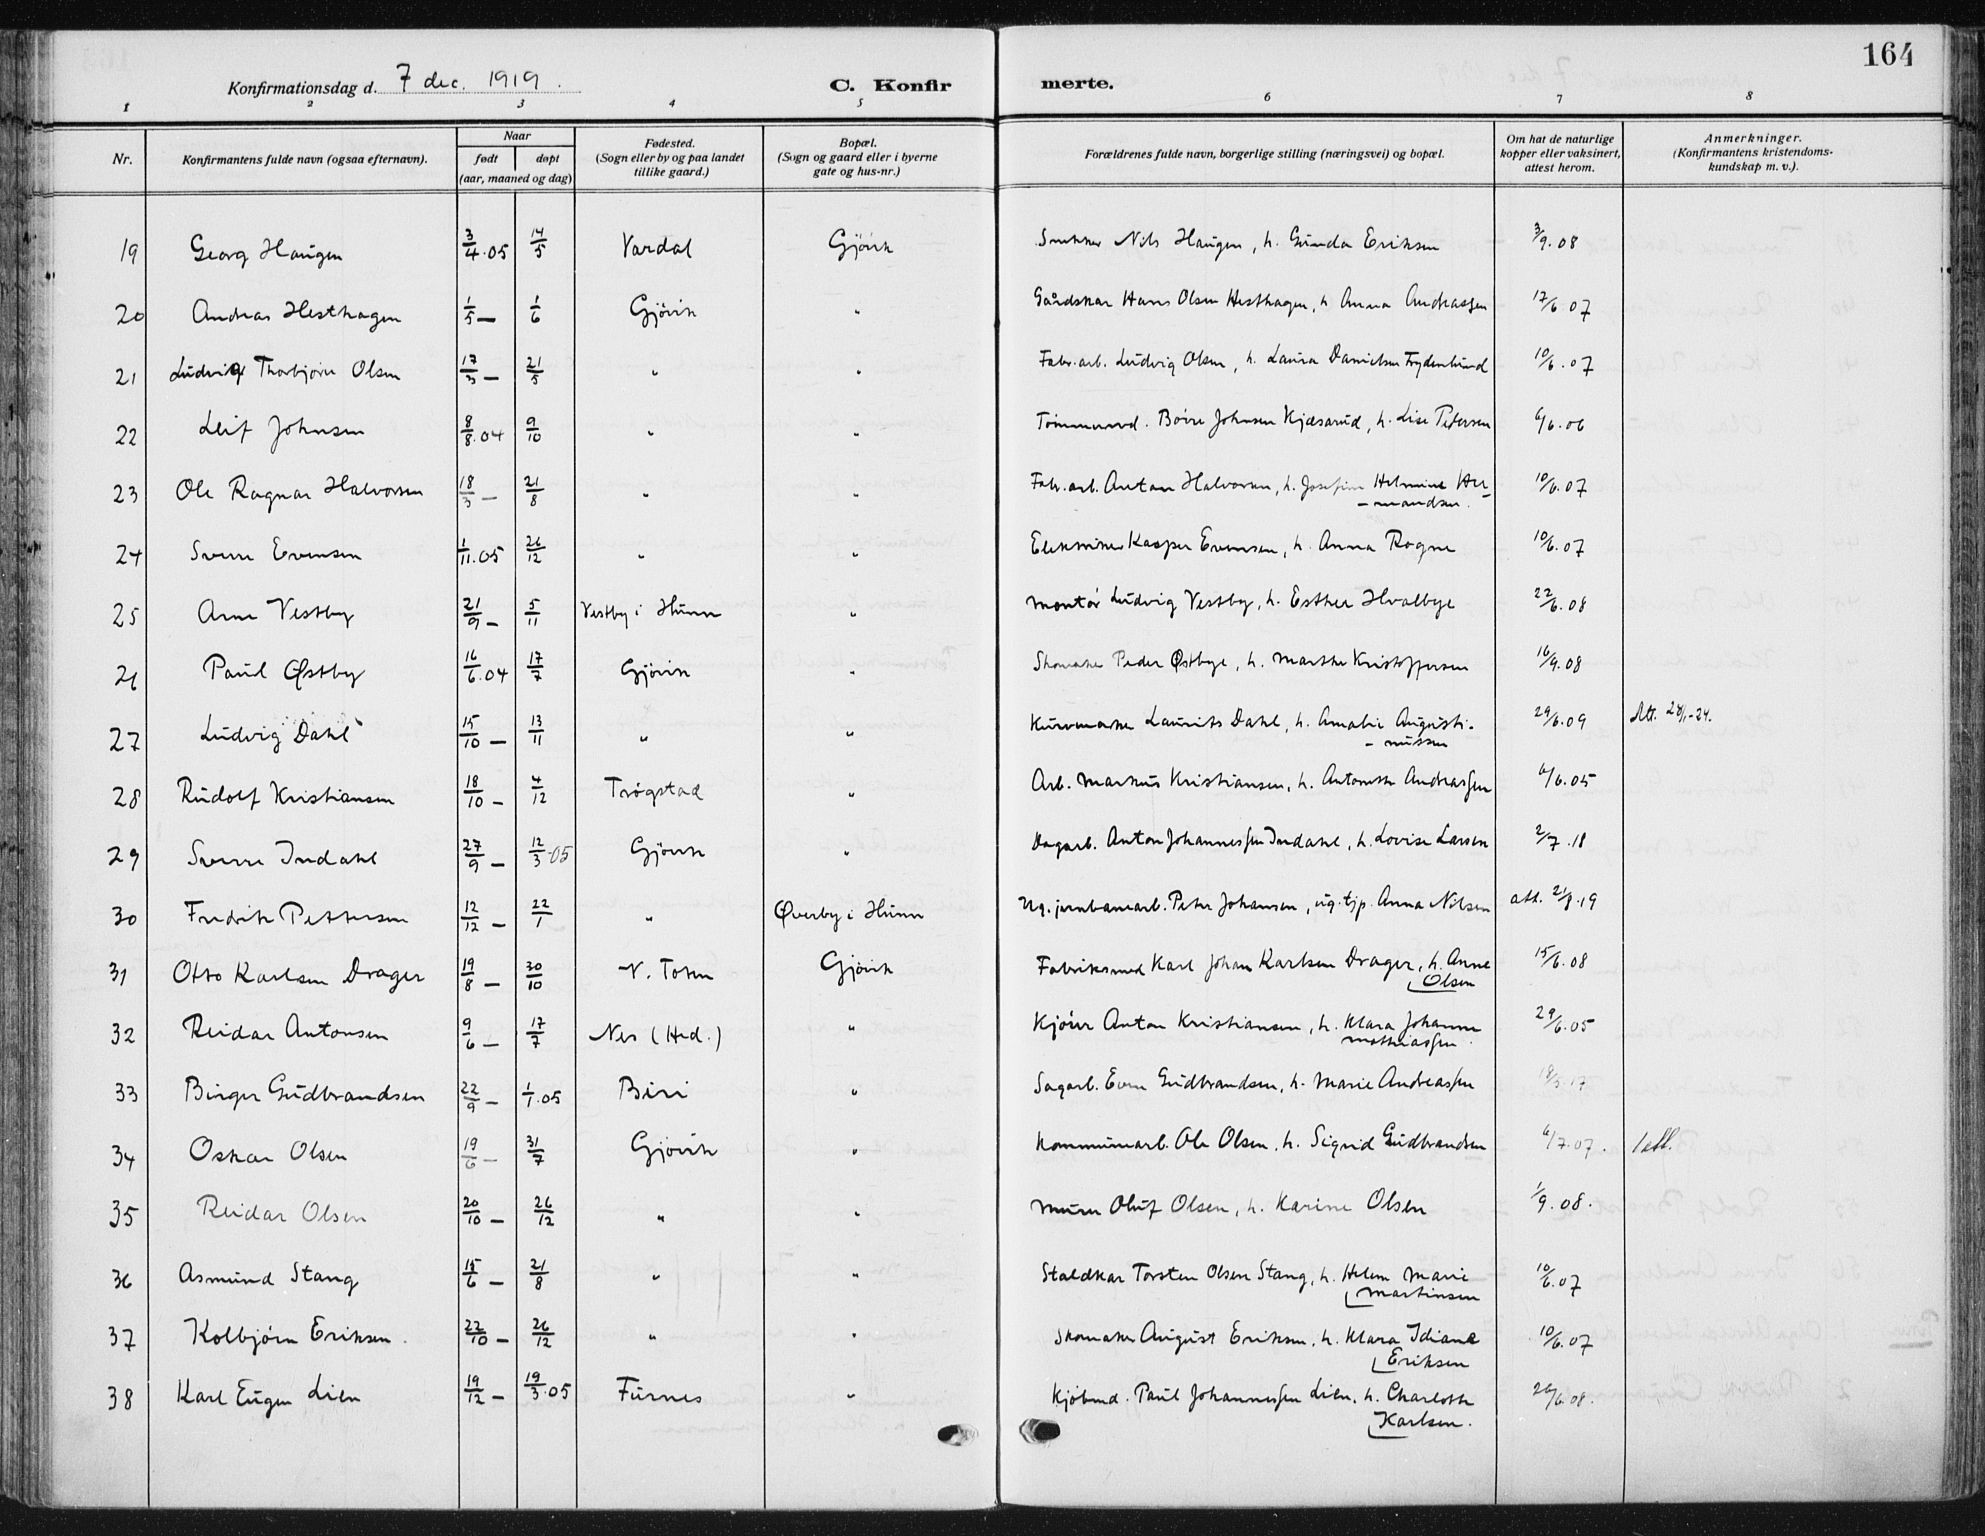 164
Konfirmationsdag d. 7 dec. 1919.
C. Konfirmerte.
1 2 3 4 5 6 7 8
Nr. Konfirmantens fulde navn (ogsaa efternavn). Naar født døpt (aar, maaned og dag) Fødested. (Sogn eller by og paa landet tillike gaard.) Bopæl. (Sogn og gaard eller i byerne gate og hus-nr.) Forældrenes fulde navn, borgerlige stilling (næringsvei) og bopæl. Om hat de naturlige kopper eller vaksinert, attest herom. Anmerkninger. (Konfirmantens kristendoms-kundskap m. v.).
19 Georg Haugen 3/4.05 14/5 Vardal Gjövik Snekker Nils Haugen, h. Gunda Eriksen 3/9.08
20 Andreas Hesthagen 1/5 — 1/6 Gjövik " Gårdskar Hans Olsen Hesthagen, h. Anna Andreassen 17/6.07
21 Ludvig Thorbjörn Olsen 17/3 — 21/5 " " Fabr.arb. Ludvig Olsen, h. Laura Danielsen Frydenlund 10/6.07
22 Leif Johnsen 8/8.04 9/10 " " Tömmermd. Bövre Johnsen Kjæsarud, h. Lise Pedersen 6/6.06
23 Ole Ragnar Halvorsen 18/3 — 21/8 " " Fabr.arb. Anton Halvorsen, h. Josefine Helmine Her-
mandsen. 10/6.07
24 Sverre Evensen 1/11.05 26/12 " " Elektriker Kasper Evensen, h. Anna Rogne 10/6.07
25 Arne Vestby 21/9 — 5/11 Vestby i Hunn " Montör Ludvig Vestby, h. Esther Hvalbye 22/6.08
26 Paul Østby 16/6.04 17/7 Gjövik " Skomaker Peder Østbye, h. Marthe Kristoffersen 16/9.08
27 Ludvig Dahl 15/10 — 13/11 " " Kurvmaker Laurits Dahl, h. Amalie Augusti-
nussen 29/6.09 Att. 24/1-24.
28 Rudolf Kristiansen 18/10 — 4/12 Trögstad " Arb. Markus Kristiansen, h. Antonette Andreassen 6/6.05
29 Sverre Indahl 27/9 — 12/3.05 Gjövik " Dagarb. Anton Johannessen Indahl, h. Lovise Larsen 2/7.18
30 Fredrik Pettersen 12/12 — 22/1 " Øverby i Hunn Ug. jernbanearb. Peter Johansen, ug. tjp. Anna Nilsen att. 21/8.19
31 Otto Karlsen Drager 19/8 — 30/10 V. Toten Gjövik Fabriksmed Karl Johan Karlsen Drager, h. Anne
Olsen 15/6.08
32 Reidar Antonsen 9/6 — 17/7 Nes (Hed.) " Kjörer Anton Kristiansen, h. Klara Johanne
Mathiassen. 29/6.05
33 Birger Gudbrandsen 22/9 — 1/1.05 Biri " Sagarb. Even Gudbrandsen, h. Marie Andreassen 18/5.17
34 Oskar Olsen 19/6 — 31/7 Gjövik " Kommunearb. Ole Olsen, h. Sigrid Gudbrandsen 6/7.07. 1 att.
35 Reidar Olsen 20/10 — 26/12 " " Murer Oluf Olsen, h. Karine Olsen 1/9.08.
36 Asmund Stang 15/6 — 21/8 " " Staldkar Torsten Olsen Stang, h. Helene Marie
Martinsen 10/6.07
37 Kolbjörn Eriksen. 22/10 — 26/12 " " Skomaker August Eriksen, h. Klara Idiane
Eriksen 10/6.07
38 Karl Eugen Lien 19/12 — 19/3.05 Furnes " Kjöbmd. Paul Johannessen Lien, h. Charlotte
Karlsen. 26/6.08.